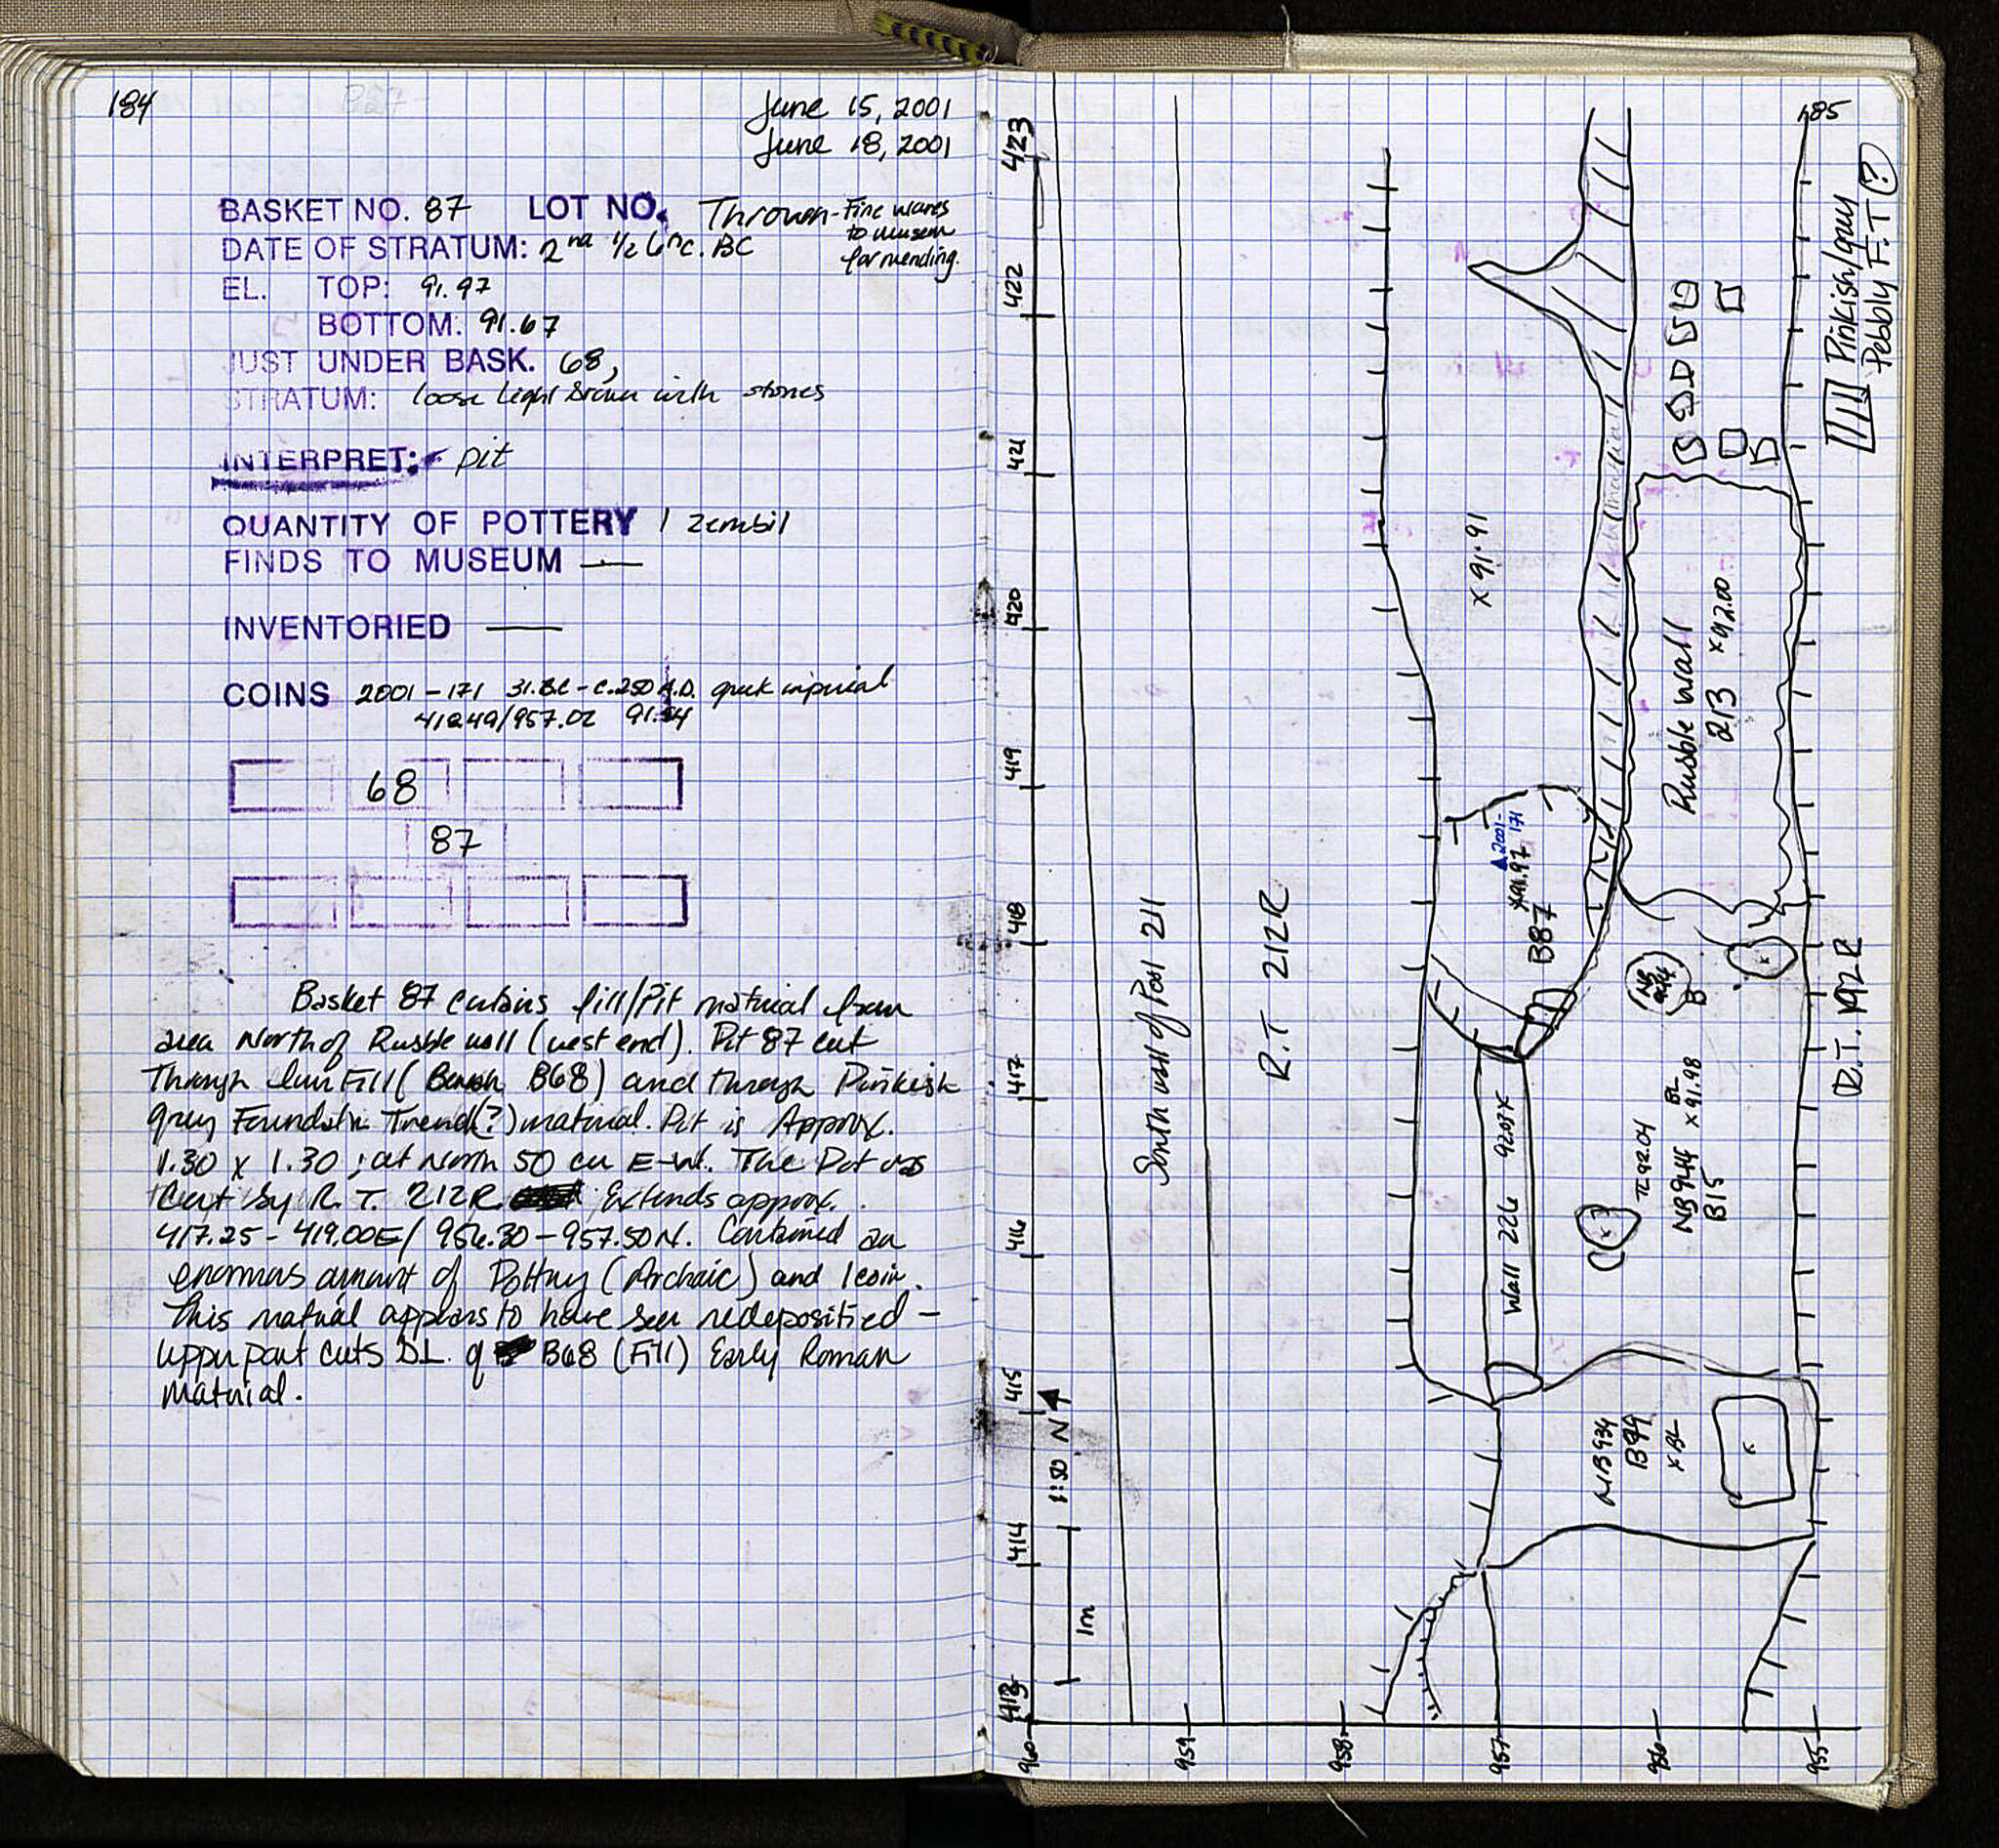 184
June 15, 2001
June 18, 2001
BASKET NO. 87 LOT NO. Thrown - Fine wares
to museum
for mending.
DATE OF STRATUM: 2nd 1/2 6th c. BC
EL. TOP: 91.97
BOTTOM: 91.67
JUST UNDER BASK. 68,
STRATUM: loose light brown with stones
INTERPRET: pit
QUANTITY OF POTTERY 1 zembil
FINDS TO MUSEUM —
INVENTORIED —
COINS 2001-171 31.BC - c.250 A.D. greek imperial
/957.02
68
87
Basket 87 contains fill/Pit material from
area North of Rubble wall (west end). Pit 87 cut
Through Fill ( B68) and through Pinkish
grey Foundation Trench(?) material. Pit is Approx.
1.30 x 1.30; at North 50 cm E-W. The Pot was
Cut by R.T. 212R Extends approx.
417.25 - 419.00E/ 956.30 - 957.50N. Contained an
enormous amount of Pottery (Archaic) and 1 coin.
This material appears to have been redeposited -
upper part cuts BL. of B68 (Fill) Early Roman
material.
185
Pinkish/gray
Pebbly F.T (?)
423
422
421
420
419
418
417
416
415
414
413
960
959
958
957
956
955
1:50 N
1m
South wall of Pool 211
R.T 212R
x 91.91
2001-
171
x91.97
B87
Rubble wall
213 x92.00
Wall 226
B
TL 92.04
NB 944 BL
B15 x 91.98
NB934
B99
x BL
R.T. 192R